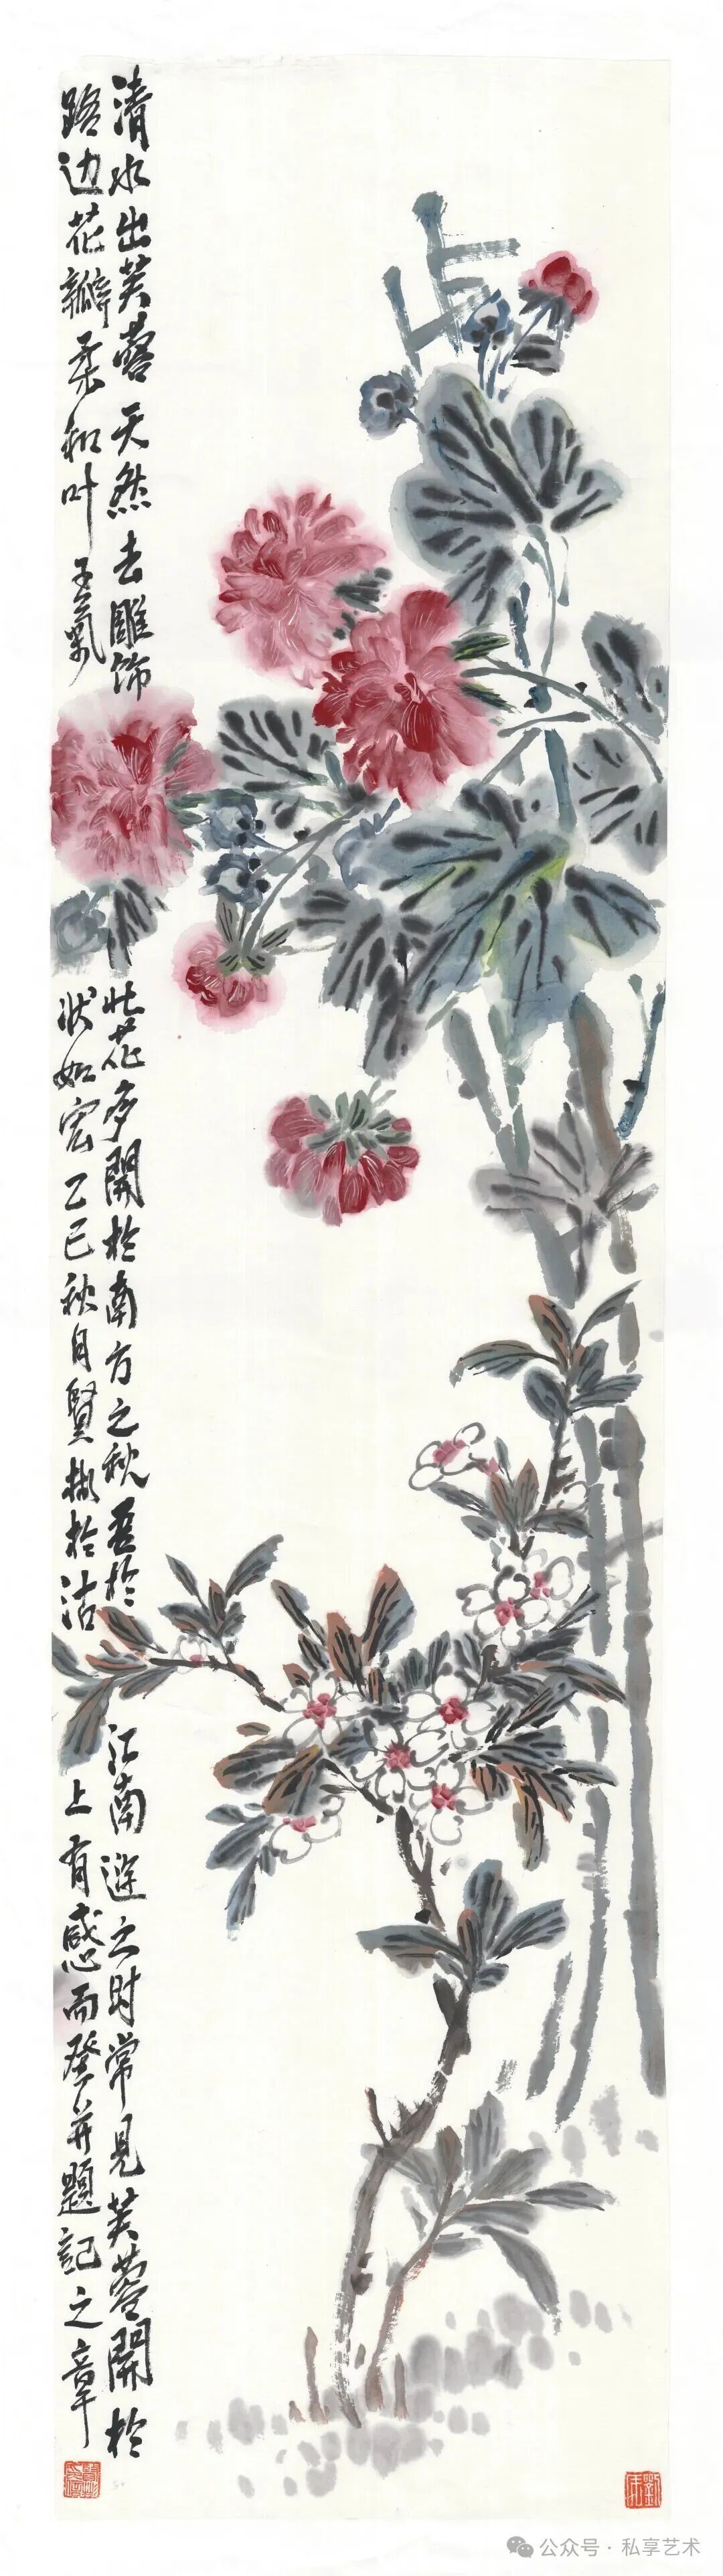 清水出芙蓉天然去雕饰此花多開於南方之秋吾於江南遊之时常見芙蓉開於
路边花瓣柔和叶子氣状如宏乙巳秋月賢彬於沽上有感而發并題記之章
公众号 · 私享艺术